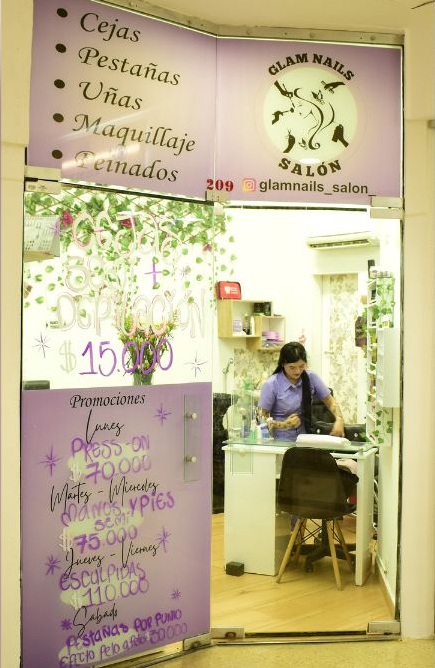 • Cejas
• Pestañas
• Uñas
• Maquillaje
• Peinados
GLAM NAILS
SALÓN
209 glamnails_salon_
DEPILACIÓN
$15.000
Promociones
Lunes
PRESS-ON
$70.000
Martes - Miercoles
MANOS Y PIES
SEMI
$75.000
Jueves - Viernes
ESCULPIDAS
$110.000
Sabado
PESTAÑAS POR PUNTO
Efecto Pelo a Pelo